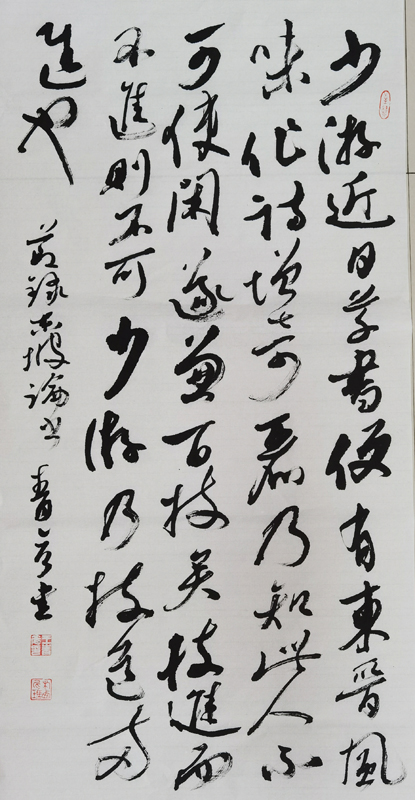 少游近日草书便有東晋風
味作詩增奇麗乃知此人不
可使闲遂兼百技矣技進而
不進則不可少游乃技道两
進也
节録東坡論书